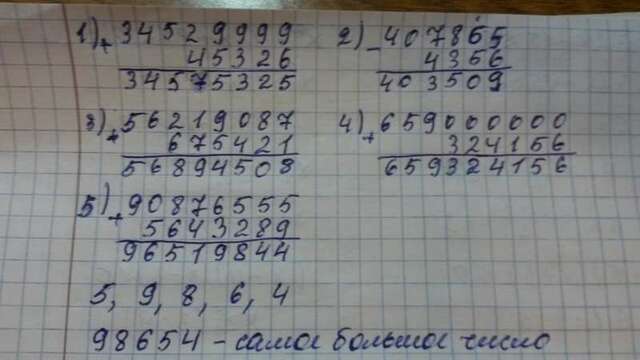 1) + 34529999
45326
34575325
2) - 407865
4356
403509
3) + 56219087
675421
56894508
4) + 659000000
324156
659324156
5) + 90876555
5643289
96519844
5, 9, 8, 6, 4
98654 - самое большое число